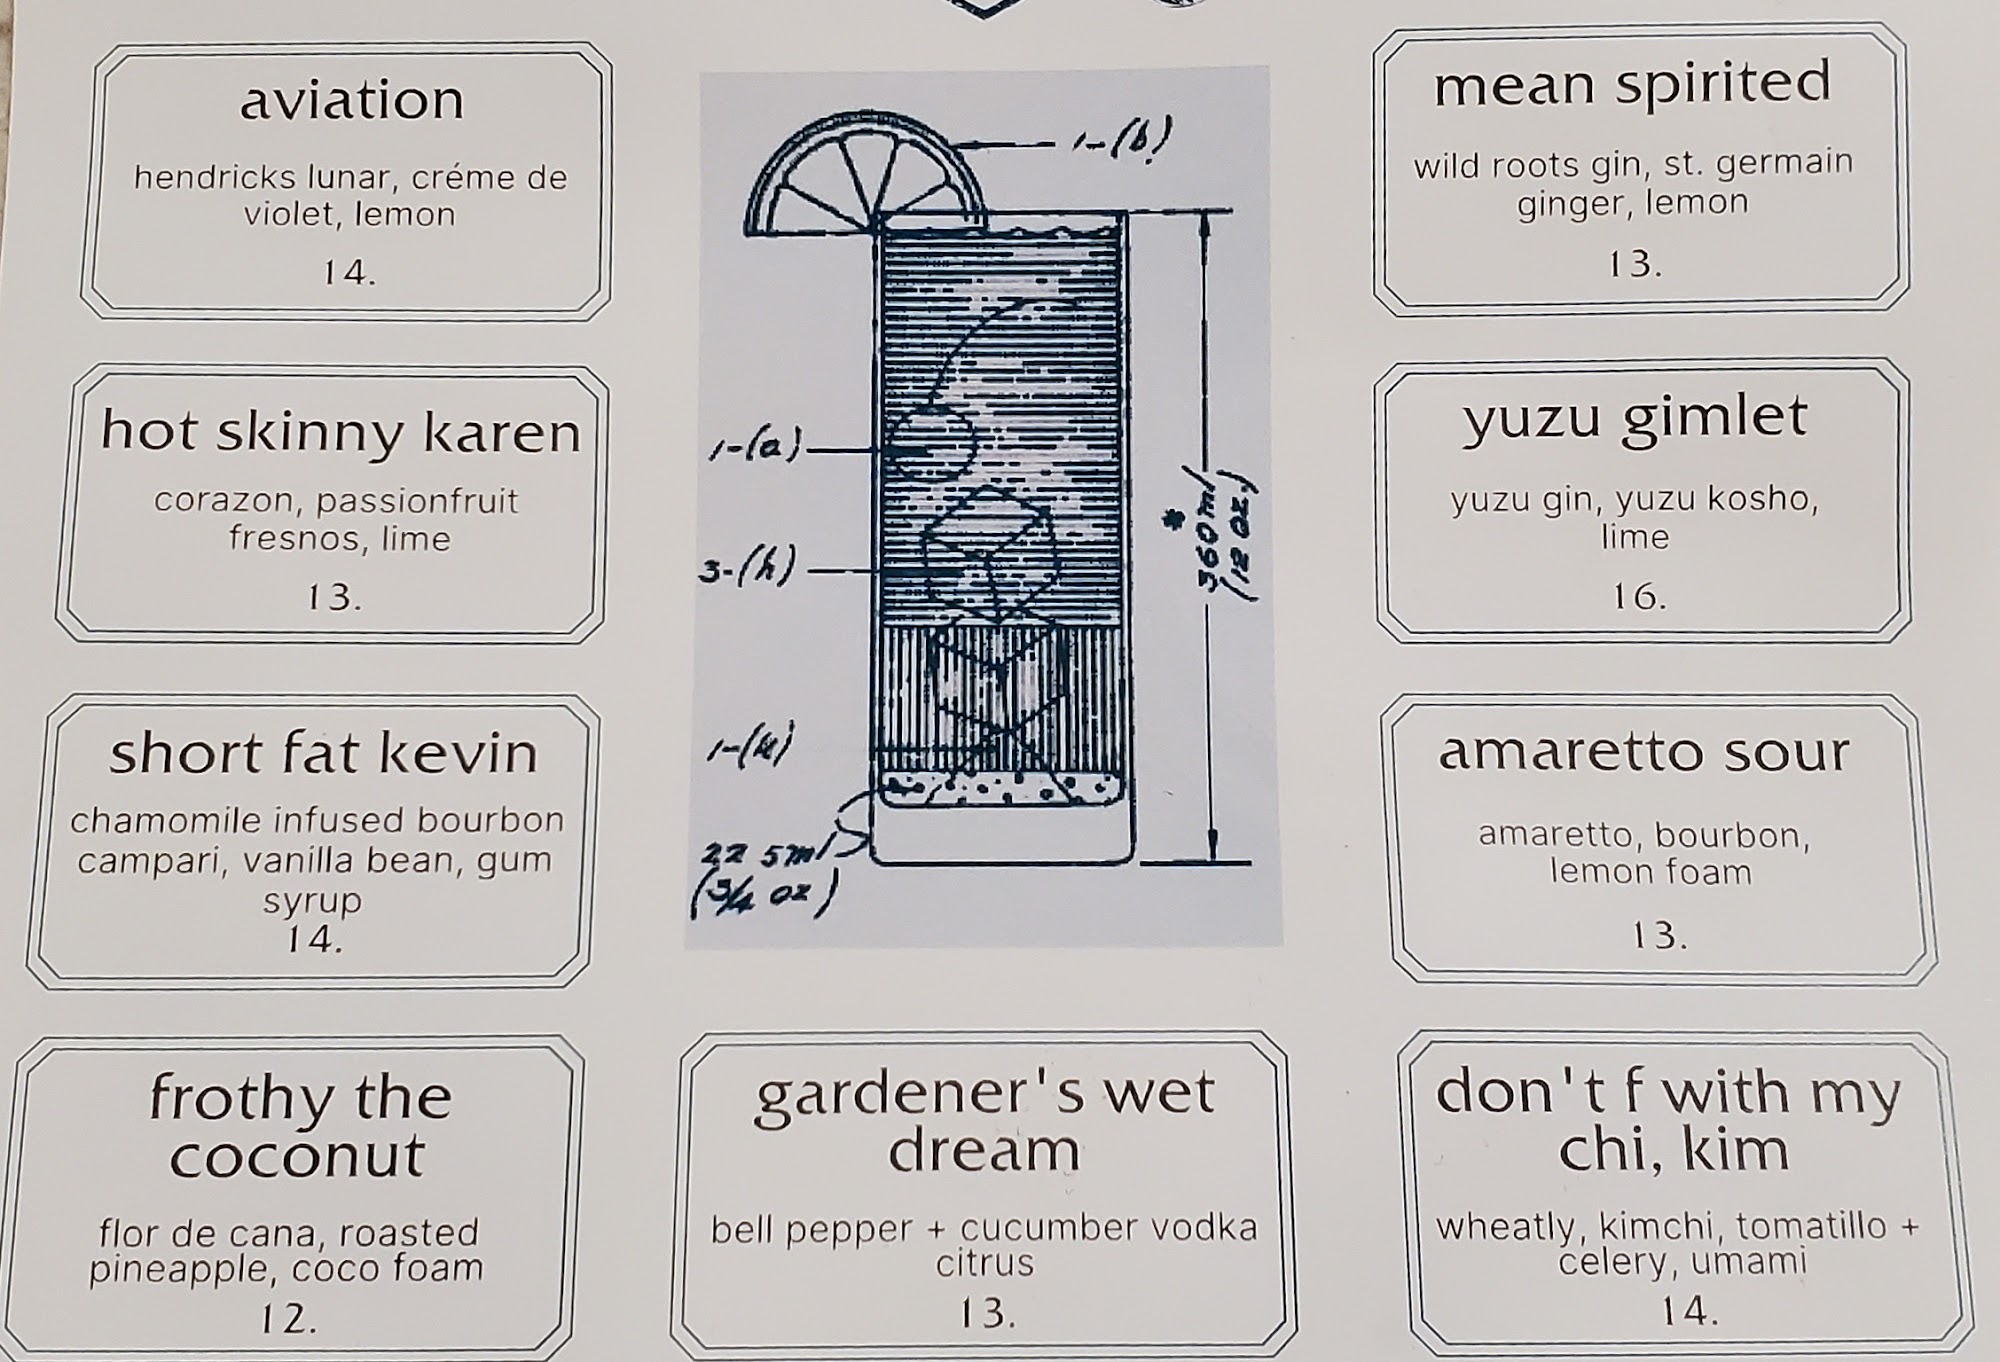 aviation
hendricks lunar, créme de
violet, lemon
14.
hot skinny karen
corazon, passionfruit
fresnos, lime
13.
short fat kevin
chamomile infused bourbon
campari, vanilla bean, gum
syrup
14.
frothy the
coconut
flor de cana, roasted
pineapple, coco foam
12.
1-(b)
1-(a)
3-(h)
1-(k)
22 5ml
(3/4 oz)
* 360ml
(12 oz.)
gardener's wet
dream
bell pepper + cucumber vodka
citrus
13.
mean spirited
wild roots gin, st. germain
ginger, lemon
13.
yuzu gimlet
yuzu gin, yuzu kosho,
lime
16.
amaretto sour
amaretto, bourbon,
lemon foam
13.
don't f with my
chi, kim
wheatly, kimchi, tomatillo +
celery, umami
14.